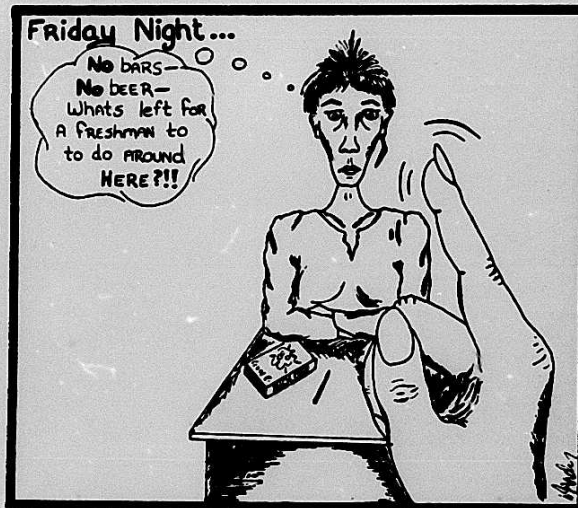 Friday Night...
No BARS—
No BEER—
Whats left for
A freshman to
to do AROUND
HERE?!!